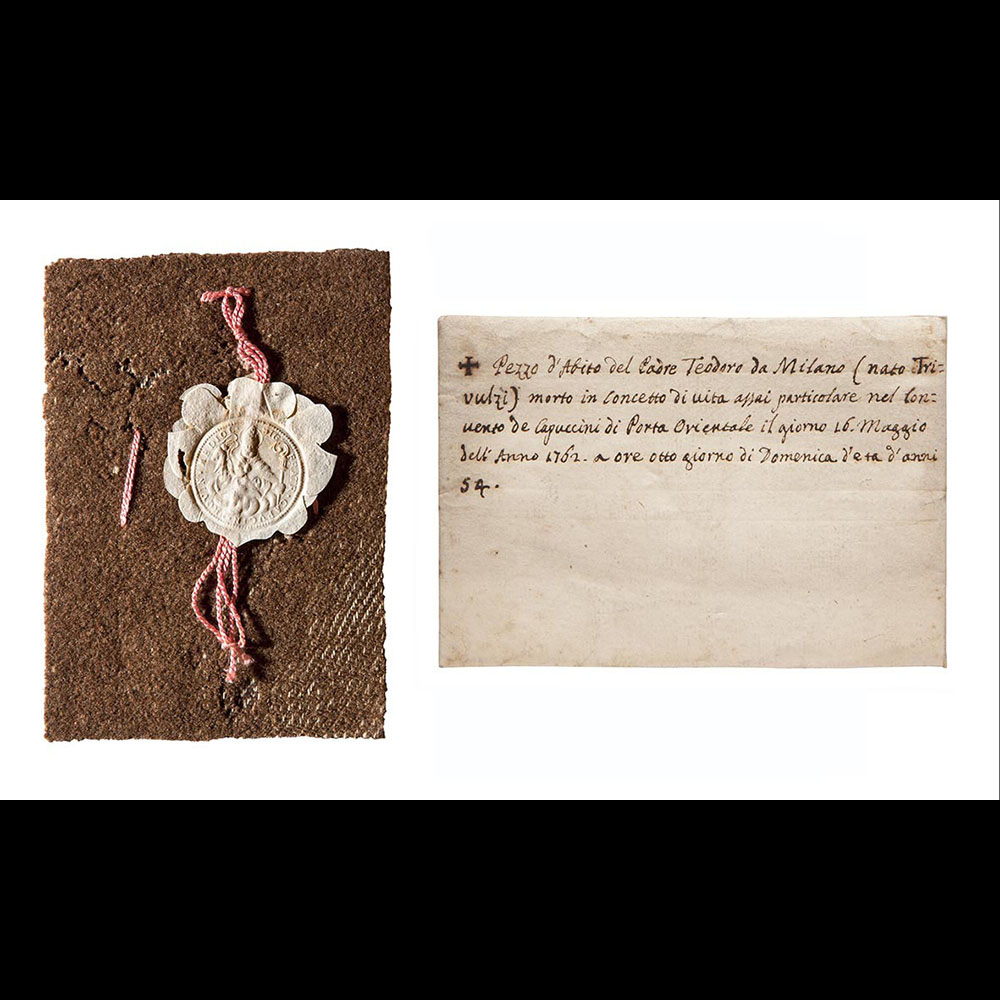 ✠ Pezzo d'Abito del Padre Teodoro da Milano (nato Tri-
vulzi) morto in Concetto di vita assai particolare nel Con-
vento de Capuccini di Porta Orientale il giorno 16. Maggio
dell'Anno 1762. a ore otto giorno di Domenica d'eta d'anni
54.